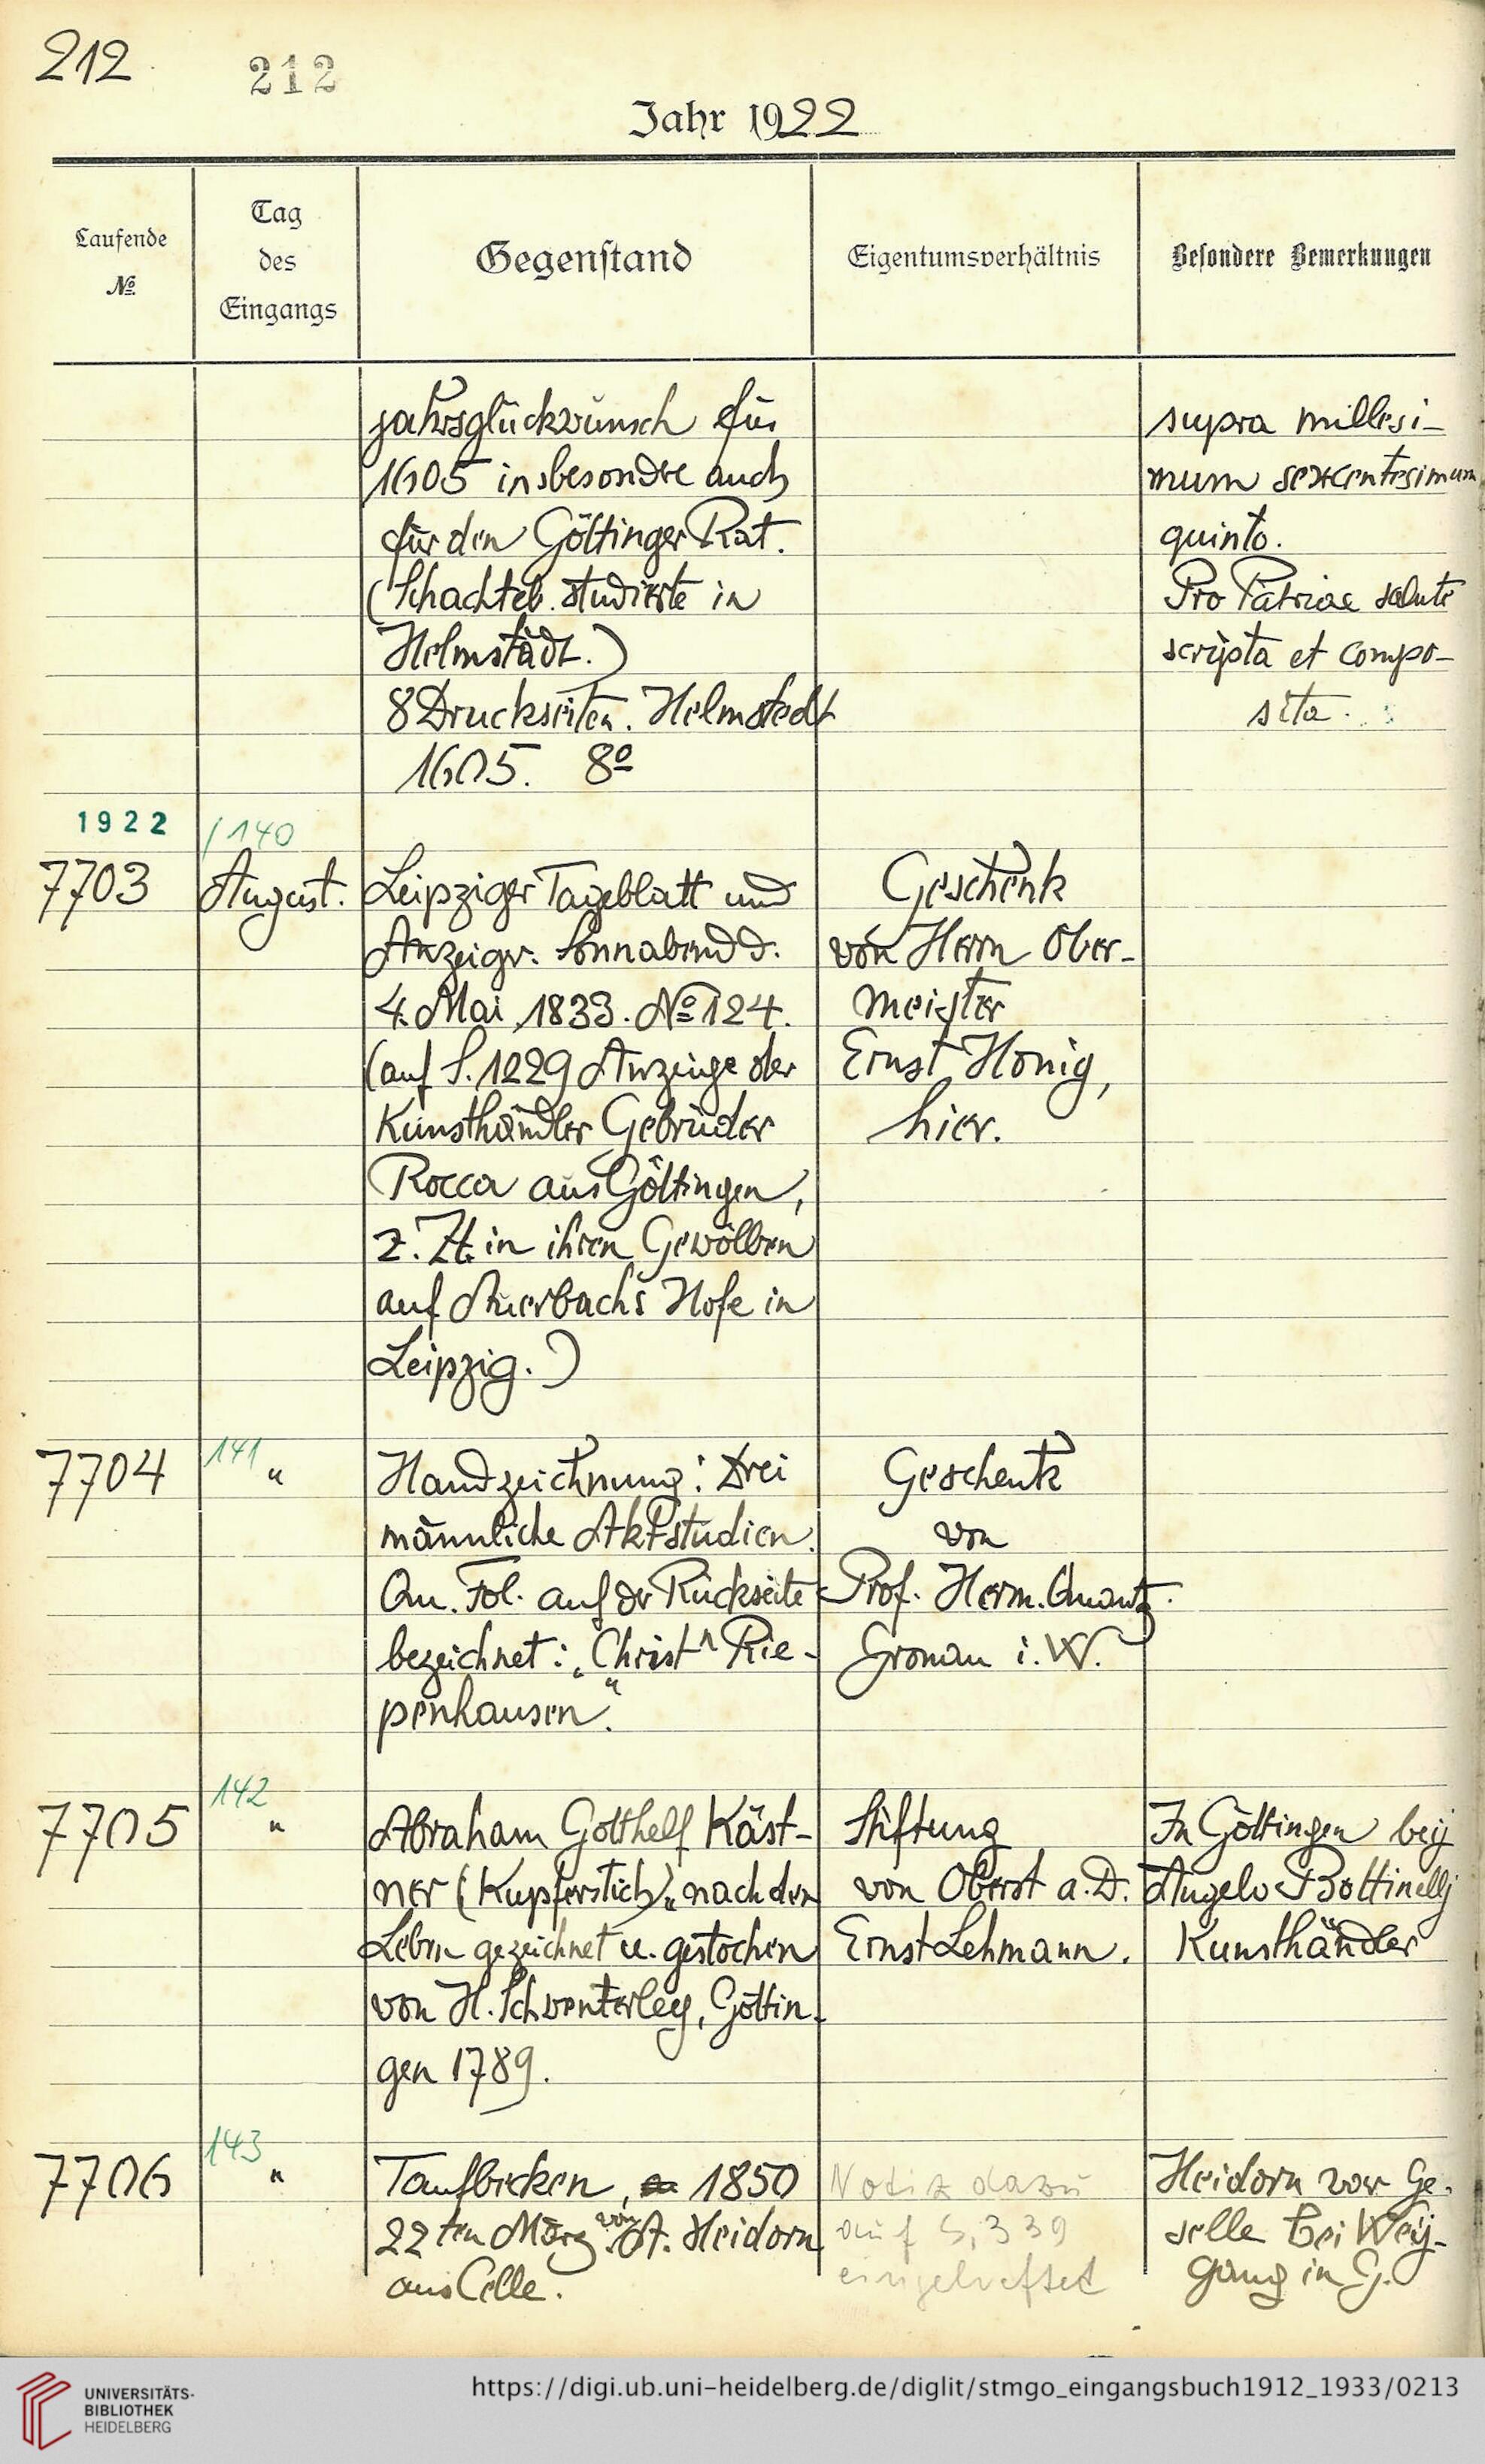 212
212
Jahr 1922
Laufende
№
Tag
des
Eingangs
Gegenstand
Eigentumsverhältnis
Besondere Bemerkungen
jahrsglückwunsch für
1605 insbesondre auch
für den Göttinger Rat.
(Schachteb. studierte in
Helmstädt.)
8 Druckseiten. Helmstedt
1605. 8º
supra millesi-
mum sexcentesimum
quinto.
Pro Patriae salute
scripta et compo-
sita.
1922 / 140
7703
August.
Leipziger Tageblatt und
Anzeiger. Sonnabend d.
4. Mai 1833. No 124.
(auf S. 1229 Anzeige der
Kunsthändler Gebrüder
Rocca aus Göttingen,
z. Zt. in ihren Gewölben
auf Auerbachs Hofe in
Leipzig.)
Geschenk
von Herrn Ober-
meister
Ernst Honig,
hier.
7704
141 "
Handzeichnung: Drei
männliche Aktstudien.
Qu. Fol. auf der Rückseite
bezeichnet: „Christn Rie-
penhausen."
Geschenk
von
Prof. Herm. Quantz.
Gronau i. W.
7705
142 "
Abraham Gotthelf Käst-
ner (Kupferstich) „nach dem
Leben gezeichnet u. gestochen
von H. Schwenterley, Göttin-
gen 1789.
Stiftung
von Oberst a. D.
Ernst Lehmann.
In Göttingen beij
Angelo Bottinellj
Kunsthändler
7706
143 "
Taufbecken, 1850
22ten März von A. Heidorn
aus Celle.
Notiz dazu
auf S. 339
eingeheftet
Heidorn war Ge-
selle bei Weij-
gang in G.
UNIVERSITÄTS-
BIBLIOTHEK
HEIDELBERG
https://digi.ub.uni-heidelberg.de/diglit/stmgo_eingangsbuch1912_1933/0213